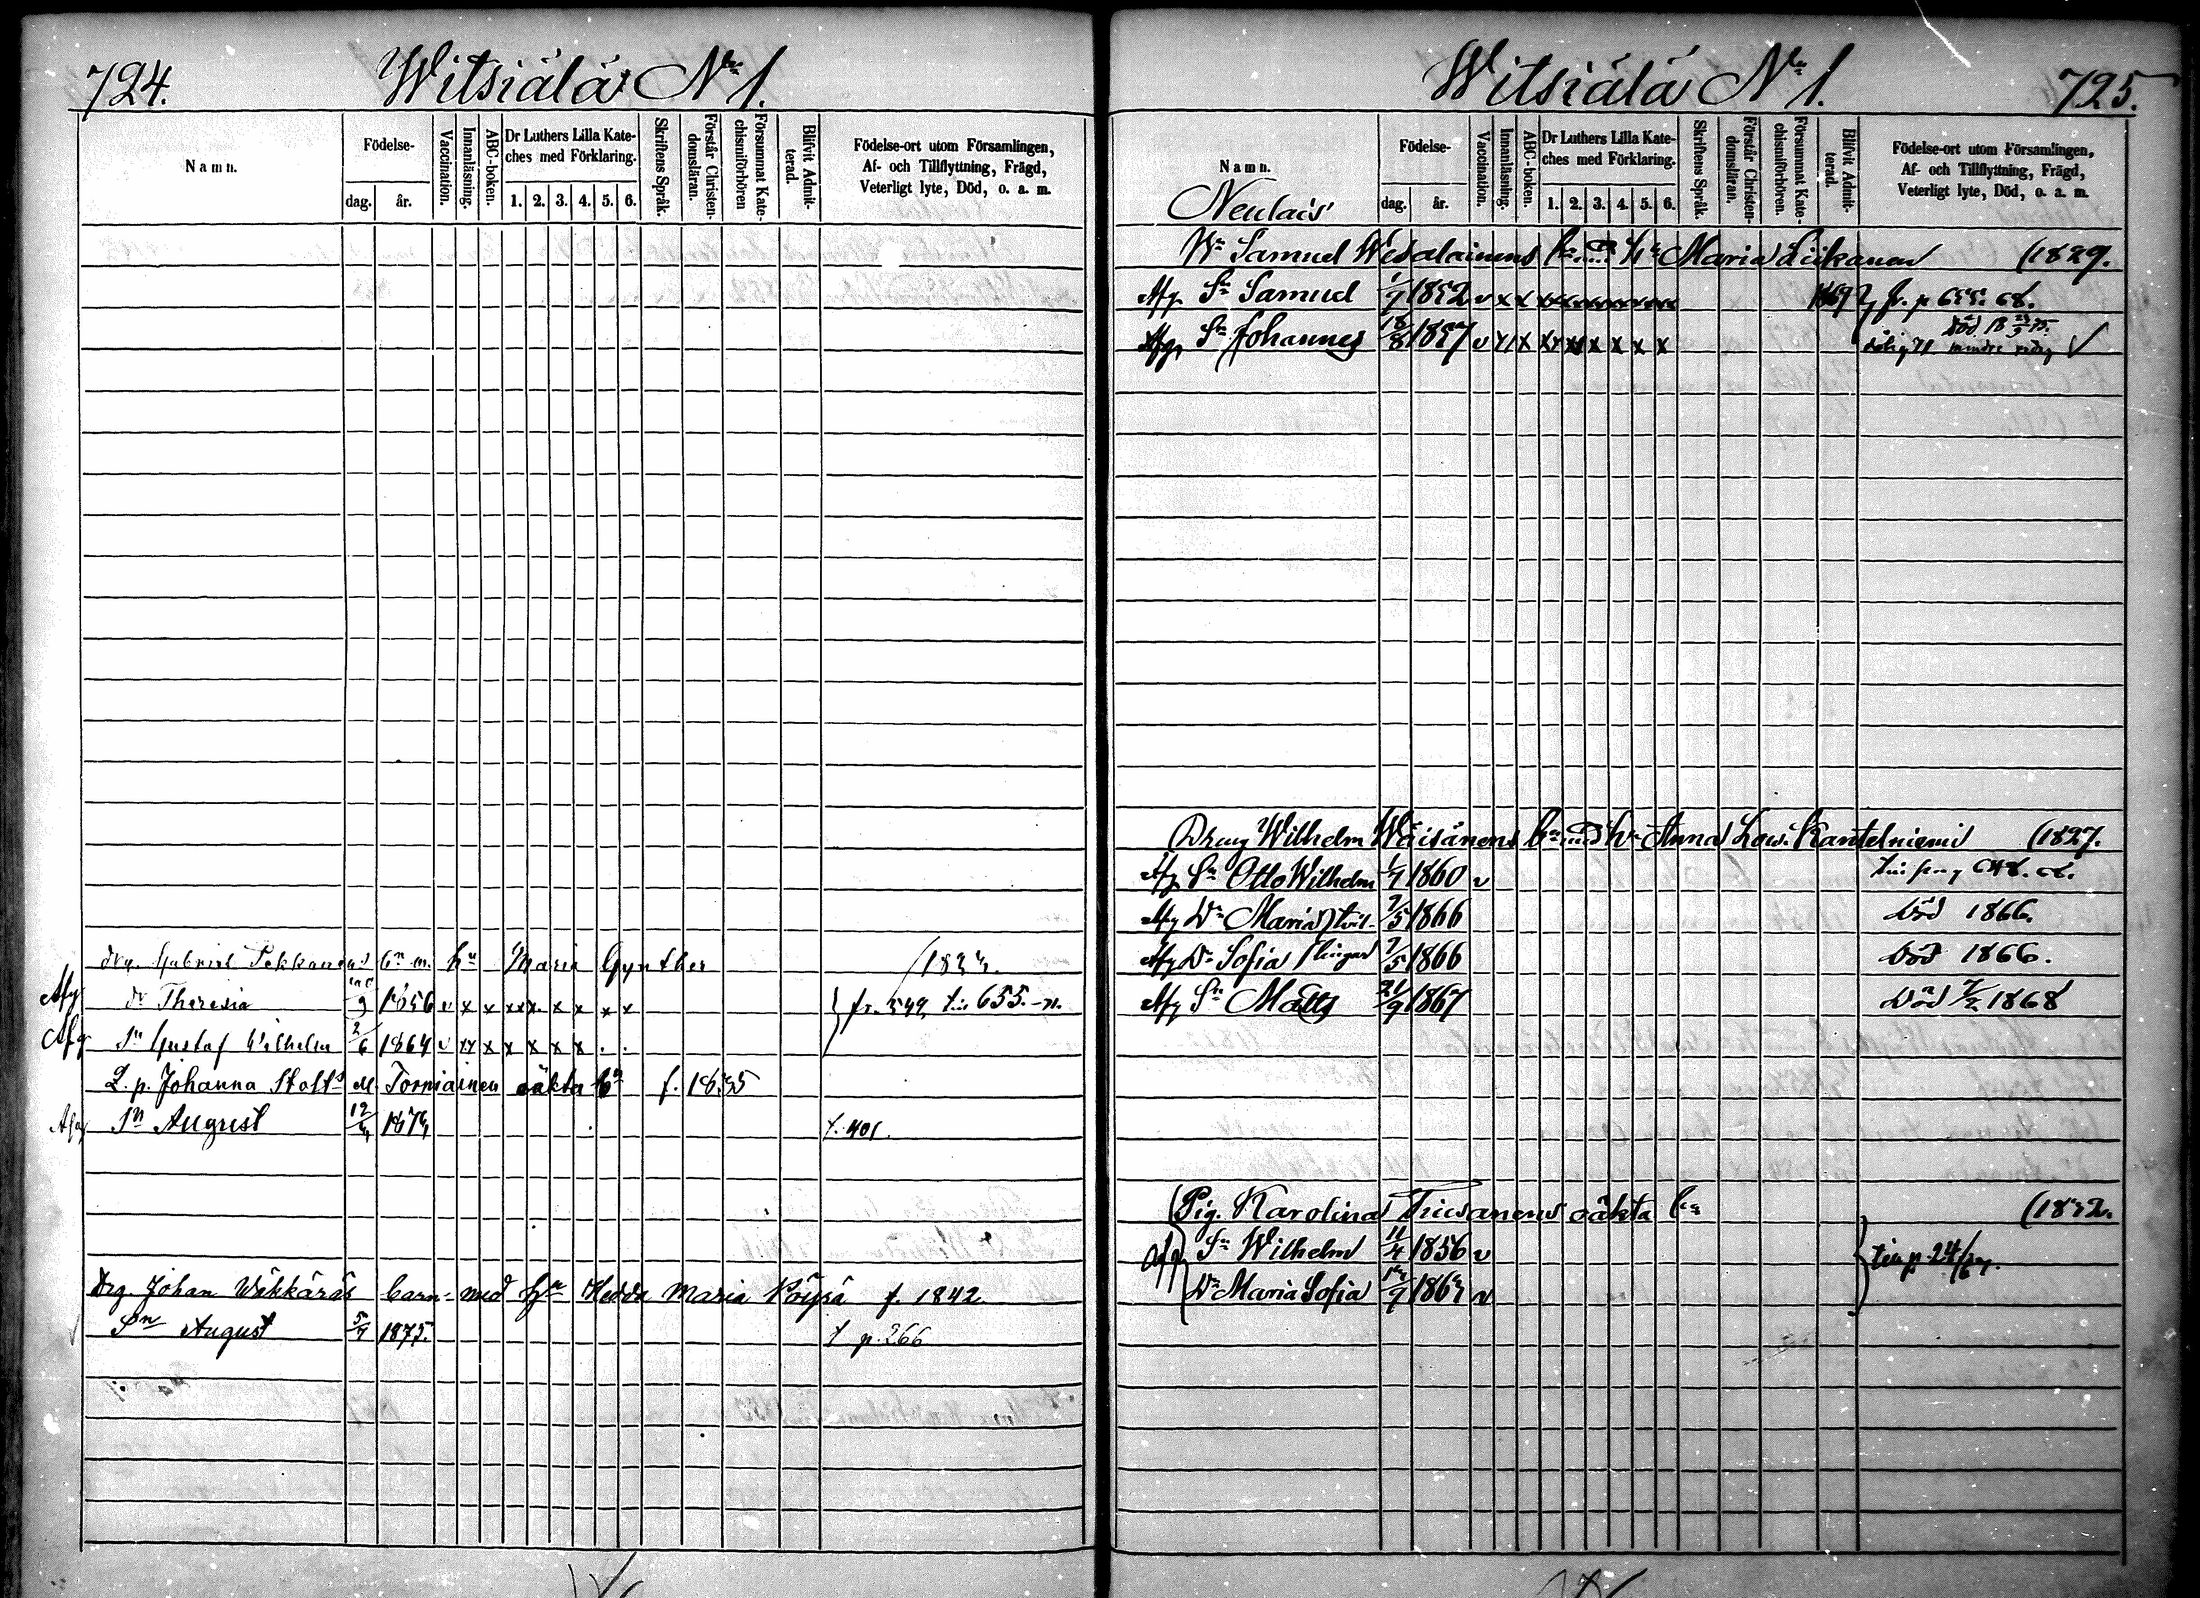 724.
Witsiälä No 1.
Namn.
Födelse-
dag. år.
Vaccination.
Innanläsning.
ABC-boken.
Dr Luthers Lilla Kate-
ches med Förklaring.
1. 2. 3. 4. 5. 6.
Skriftens Språk.
Förstår Christen-
domsläran.
Försummat Kate-
chismiförhören
Blifvit Admit-
terad.
Födelse-ort utom Församlingen,
Af- och Tillflyttning, Frägd,
Veterligt lyte, Död, o. a. m.
drg. Gabriel bn m. hu Maria Gynther
Afg dr Theresia 9 1856 v x x xx x x x x x fr. 549, till 655.
Afg Sn Gustaf Wilhelm 2/6 1864 v xx x x x x x . .
L. p. Johanna Stolts M. Torniainen oäkta bn f. 1835
Afg Sn August 12 t. 401.
Drg. Johan Wäkkäräs barn med hu Hedda Maria Pöysä f. 1842.
Sn August 5/4 1875. t p. 266
Witsiälä No 1.
725.
Namn.
Neulais
Födelse-
dag. år.
Vaccination.
Innanläsning.
ABC-boken.
Dr Luthers Lilla Kate-
ches med Förklaring.
1. 2. 3. 4. 5. 6.
Skriftens Språk.
Förstår Christen-
domsläran.
Försummat Kate-
chismiförhören.
Blifvit Admit-
terad.
Födelse-ort utom Församlingen,
Af- och Tillflyttning, Frägd,
Veterligt lyte, Död, o. a. m.
Samuel Wesalainens bn med hu Maria Liikanen (1829.
Afg Sn Samuel 1/7 1852 v x x fr. p 655. 68.
Afg Sn Johannes 18/8 1857 v x x x x x x x död
Dräng Wilhelm Wäisänens bn med hu Anna Lov. Kantelniemi (1827.
Afg Sn Otto Wilhelm 1860 v 648. 68.
Afg Dr Maria tvil- 7/5 1866 död 1866.
Afg Dr Sofia lingar 7/5 1866 död 1866.
Afg Sn Matts 21/9 1867 död 7/2 1868
Pig. Karolina Tiusanens oäkta bn
afg Sn Wilhelm 11/4 1856 v
Dr Maria Sofia v